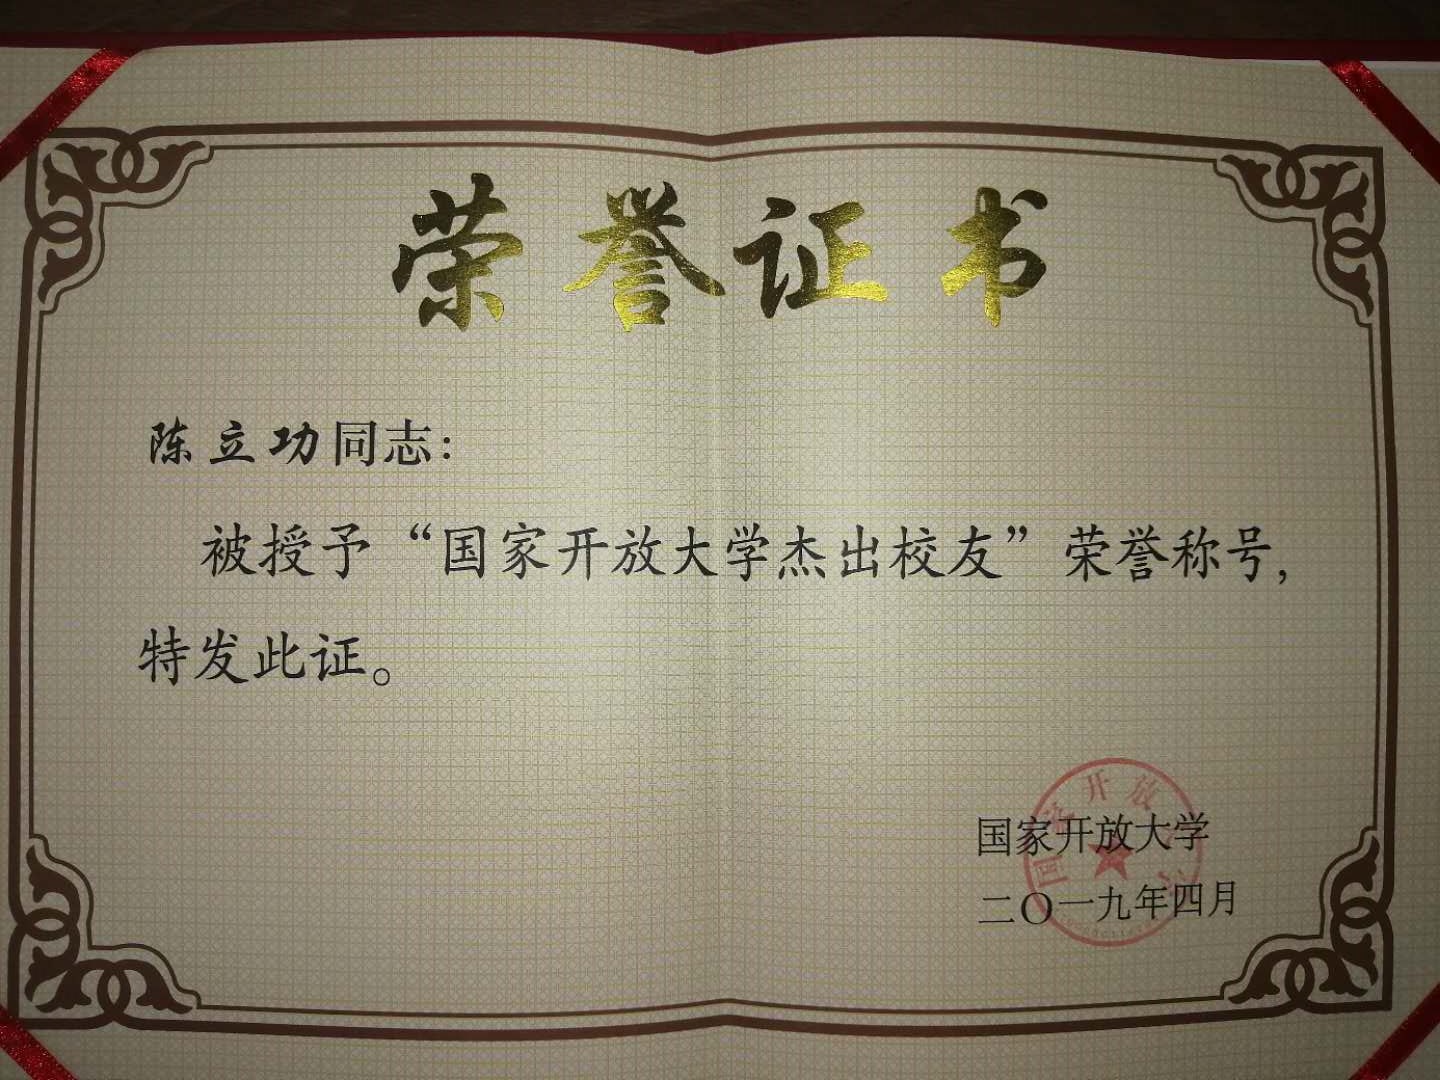 荣誉证书
陈立功同志：
被授予“国家开放大学杰出校友”荣誉称号，
特发此证。
国家开放大学
二〇一九年四月
国家开放大学